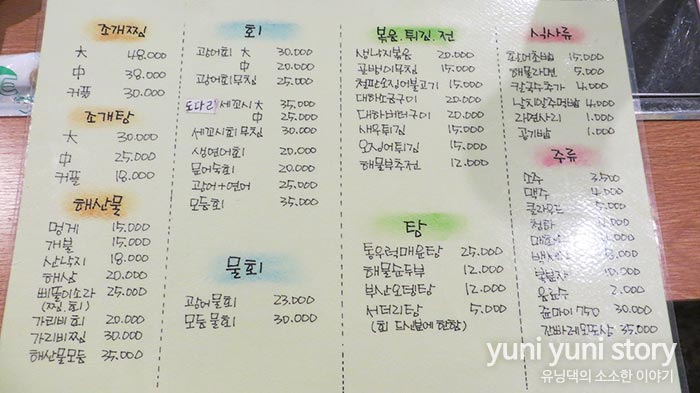 조개찜
大 48.000
中 38.000
커플 30.000
조개탕
大 30.000
中 25.000
커플 18.000
해산물
멍게 15.000
개불 15.000
산낙지 18.000
해삼 20.000
삐뚤이소라 25.000
(찜.회)
가리비회 20.000
가리비찜 30.000
해산물모듬 35.000
회
광어회 大 30.000
中 20.000
광어회무침 25.000
도다리 세꼬시 大 35.000
中 25.000
세꼬시회무침 30.000
생연어회 20.000
20.000
광어+연어 25.000
모듬회 35.000
물회
광어물회 23.000
모듬물회 30.000
볶음.튀김.전
산낙지볶음 20.000
골뱅이무침 15.000
철판오징어불고기 15.000
대하소금구이 20.000
대하버터구이 20.000
새우튀김 15.000
오징어튀김 15.000
해물부추전 12.000
탕
통우럭매운탕 25.000
해물순두부 12.000
부산오뎅탕 12.000
서더리탕 5.000
(회 드신분에 한함)
식사류
광어초밥 15.000
해물라면 5.000
칼국수추가 4.000
날치알주먹밥 4.000
라면사리 1.000
공기밥 1.000
주류
소주 3.500
맥주 4.000
콜라or는 5.000
청하
매화수
백세주
복분자
음료수 2.000
준마이750 30.000
간바레오또상 35.000
yuni yuni story
유닝댁의 소소한 이야기